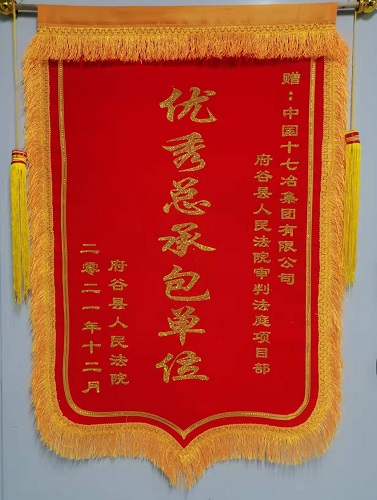 赠：中国十七冶集团有限公司
府谷县人民法院审判法庭项目部
优秀总承包单位
府谷县人民法院
二零二一年十二月